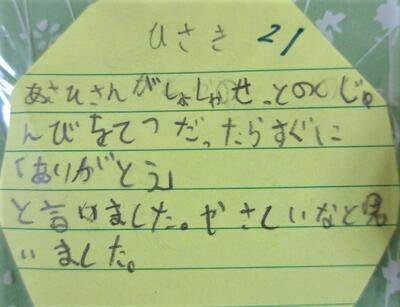 ひさき 21
あさひさんがしょしゃせっとのじゅ
んびをてつだったらすぐに
「ありがとう」
と言いました。やさしいなと思
いました。